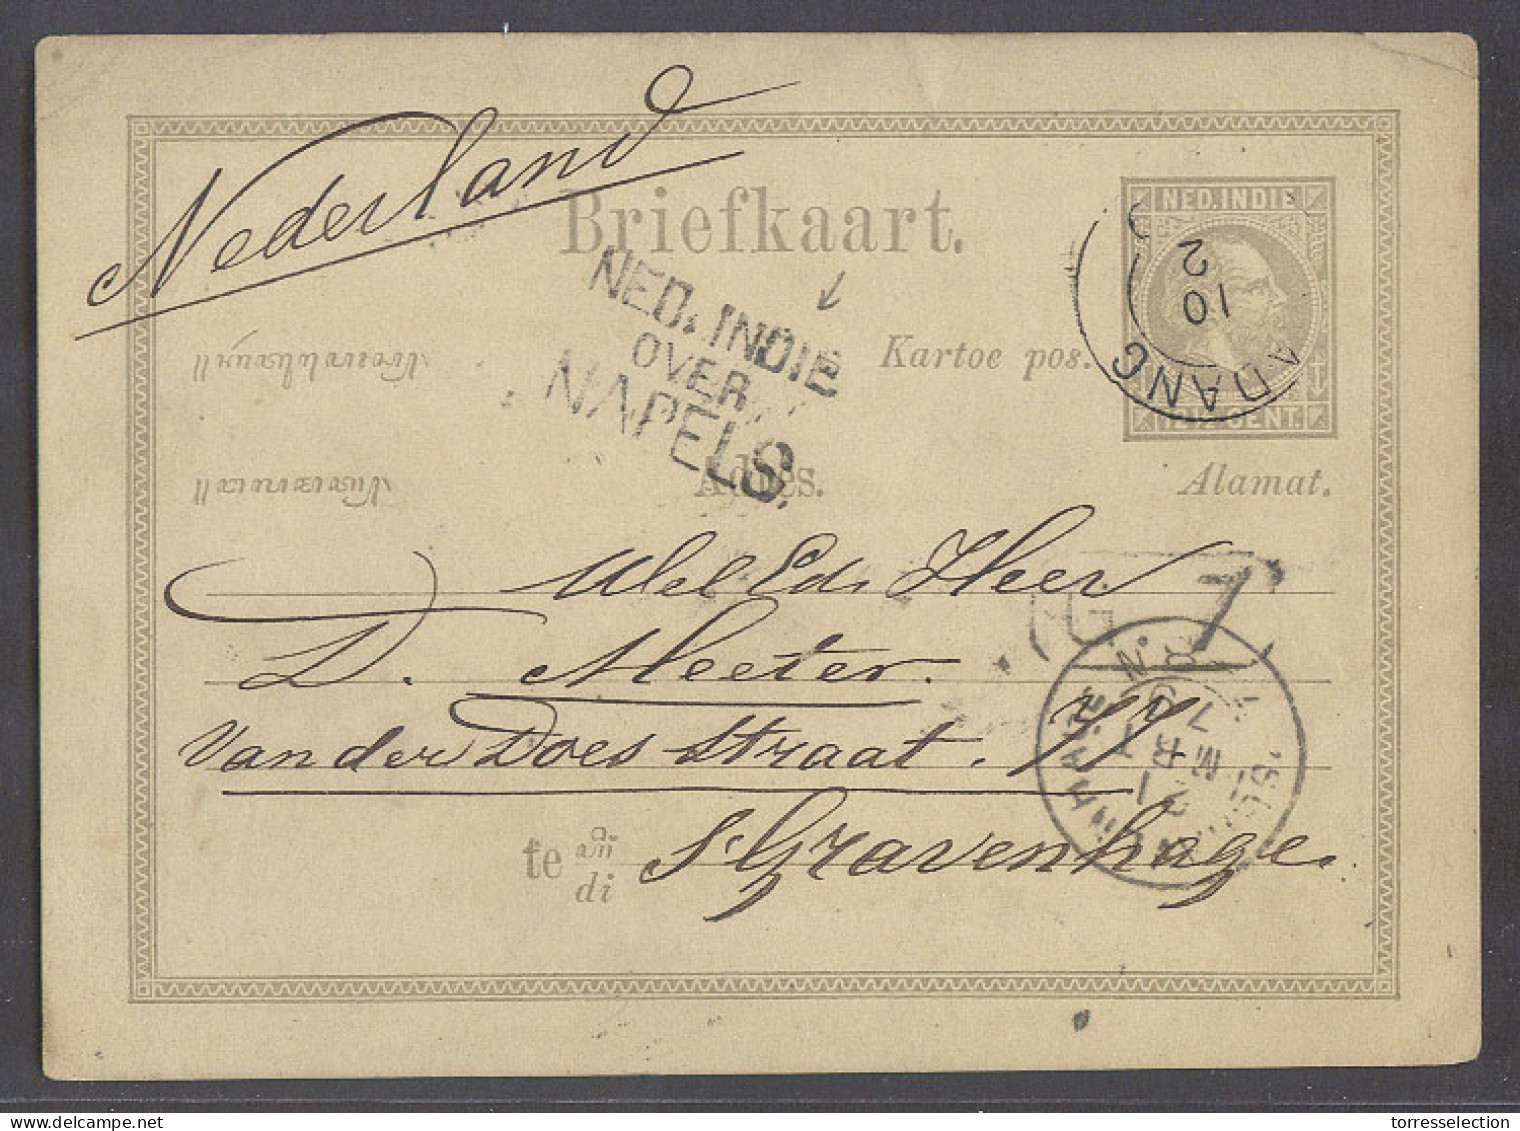 Nederland
Briefkaart.
NED. INDIE
NED. INDIE
OVER
NAPELS.
Kartoe pos.
2
10
ADANG
CENT.
Adres.
Alamat.
Wel Ed. Heer
D. Meeter.
van der Does Straat. 77
te
di
s'Gravenhage.
torresselection